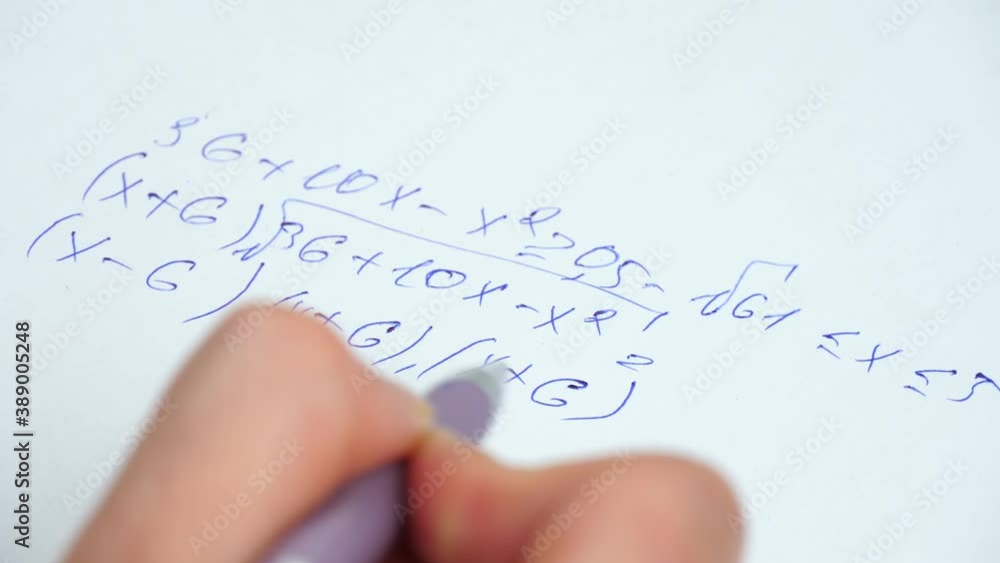 36+10x-x²≥0 5-√61≤x≤5
(x+6)√36+10x-x²=
(x-6)(x+6),(x+6)
Adobe Stock | #389005248